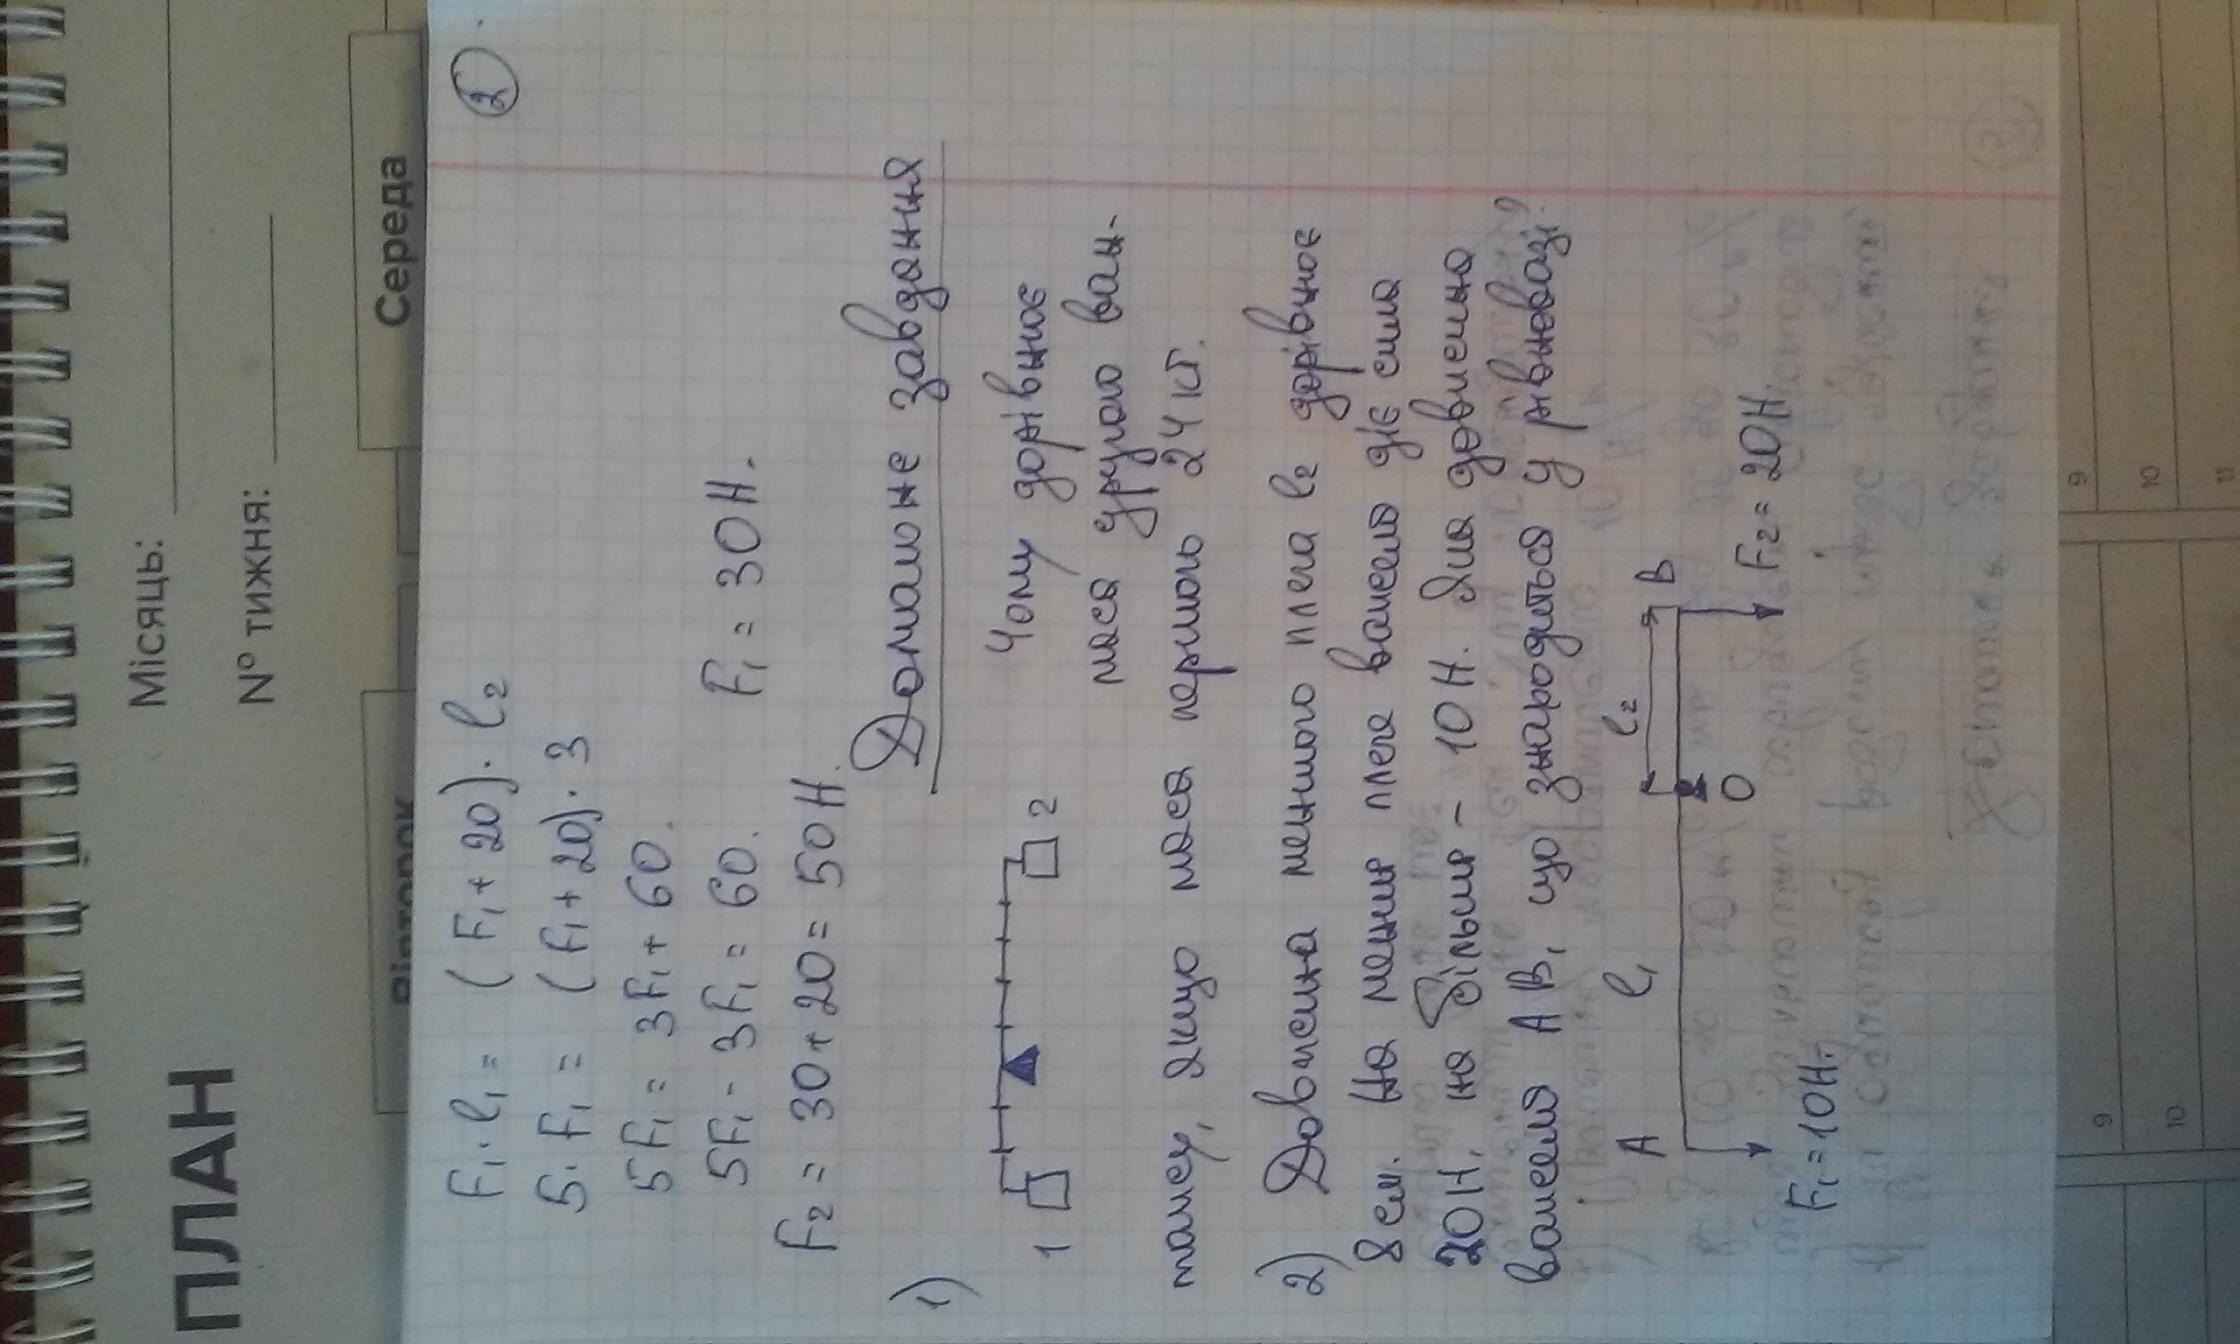 ПЛАН
Місяць:
№ тижня:
Вівторок
Середа
2
F₁ · l₁ = (F₁ + 20) · l₂
5 · F₁ = (F₁ + 20) · 3
5F₁ = 3F₁ + 60.
5F₁ - 3F₁ = 60.
F₁ = 30Н.
F₂ = 30 + 20 = 50Н.
Домашнє завдання
1)
1
2
Чому дорівнює
маса другого ван-
тажу, якщо маса першого 24 кг.
2) Довжина меншого плеча l₂ дорівнює
8 см. На менше плече важеля діє сила
20Н, на більше - 10Н. Яка довжина
важеля АВ, що знаходиться у рівновазі?
А
l₁
l₂
В
О
F₁ = 10Н.
F₂ = 20Н.
9
10
9
10
11